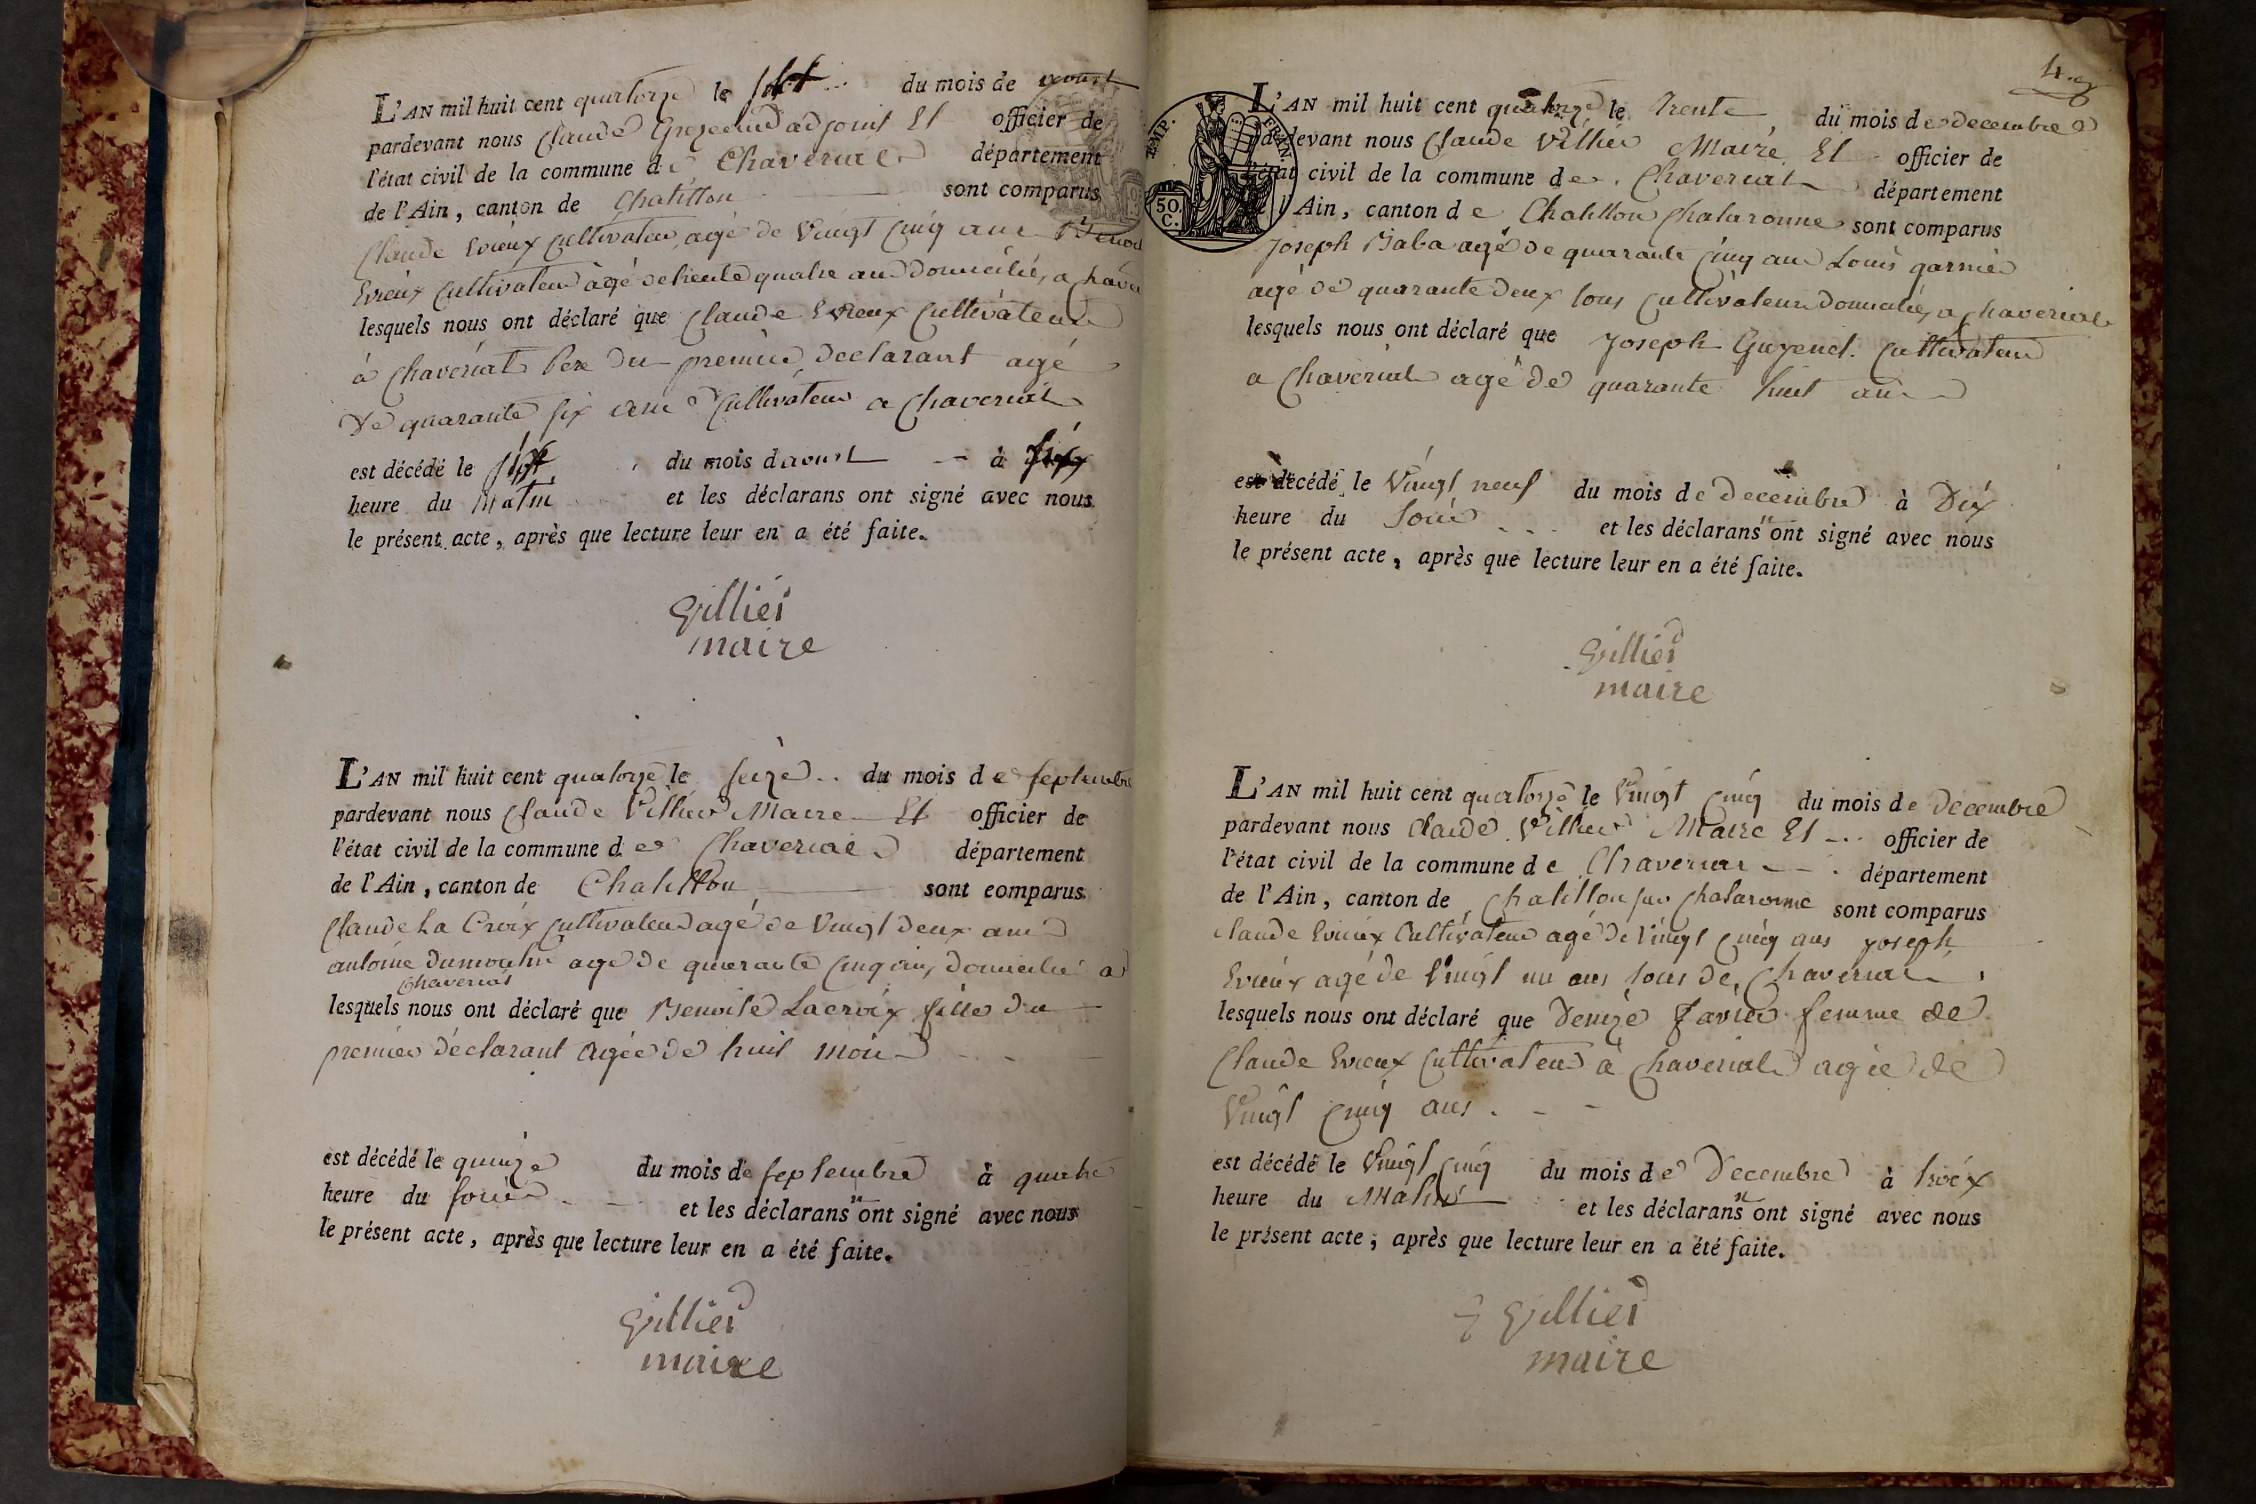 L'AN mil huit cent quatorze le sept du mois de aoust
pardevant nous Claude adjoint Et officier de
l'état civil de la commune de Chaveriat département
de l'Ain, canton de Chatillon sont comparus
Claude Evieux Cultivateur agé de Vingt Cinq ans Benoit
Evieux Cultivateur agé de trente quatre ans domiciliés a Chave
lesquels nous ont déclaré que Claude Evieux Cultivateur
à Chaveriat Pere du premier declarant agé
De quarante six ans Cultivateur a Chaveriat
est décédé le sept du mois daoust à six
heure du Matin et les déclarans ont signé avec nous
le présent acte, après que lecture leur en a été faite.
Villier
maire
L'AN mil huit cent quatorze le seize du mois de septembre
pardevant nous Claude Villier Maire Et officier de
l'état civil de la commune de Chaveriat département
de l'Ain, canton de Chatillon sont comparus
Claude La Croix Cultivateur agé de Vingt Deux ans
antoine dumoulin agé de quarante Cinq ans domicilié a
Chaveriat
lesquels nous ont déclaré que Benoite Lacroix fille du
premier déclarant Agée de huit mois
est décédé le quinze du mois de septembre à quatre
heure du soir et les déclarans n'ont signé avec nous
le présent acte, après que lecture leur en a été faite.
Villier
maire
4.e
TIMP. FRAN.
50.
C.
L'AN mil huit cent quatorze le Trente du mois de decembre
pardevant nous Claude Villier Maire Et officier de
l'état civil de la commune de Chaveriat département
de l'Ain, canton de Chatillon Chalaronne sont comparus
Joseph Baba agé de quarante Cinq ans Louis garnier
agé de quarante deux tous Cultivateurs domiciliés a Chaveriat
lesquels nous ont déclaré que Joseph Guyenet Cultivateur
a Chaveriat agé de quarante huit ans
est décédé le Vingt neuf du mois de decembre à Dix
heure du Soir et les déclarans n'ont signé avec nous
le présent acte, après que lecture leur en a été faite.
Villier
maire
L'AN mil huit cent quatorze le Vingt Cinq du mois de decembre
pardevant nous Claude Villier Maire Et officier de
l'état civil de la commune de Chaveriat département
de l'Ain, canton de Chatillon sur Chalaronne sont comparus
Claude Evieux Cultivateur agé de Vingt Cinq ans Joseph
Evieux agé de Vingt un ans tous de Chaveriat
lesquels nous ont déclaré que Denize Favier femme de
Claude Evieux Cultivateur à Chaveriat agée de
Vingt Cinq ans
est décédé le Vingt Cinq du mois de Decembre à troix
heure du Matin et les déclarans n'ont signé avec nous
le présent acte, après que lecture leur en a été faite.
Villier
maire